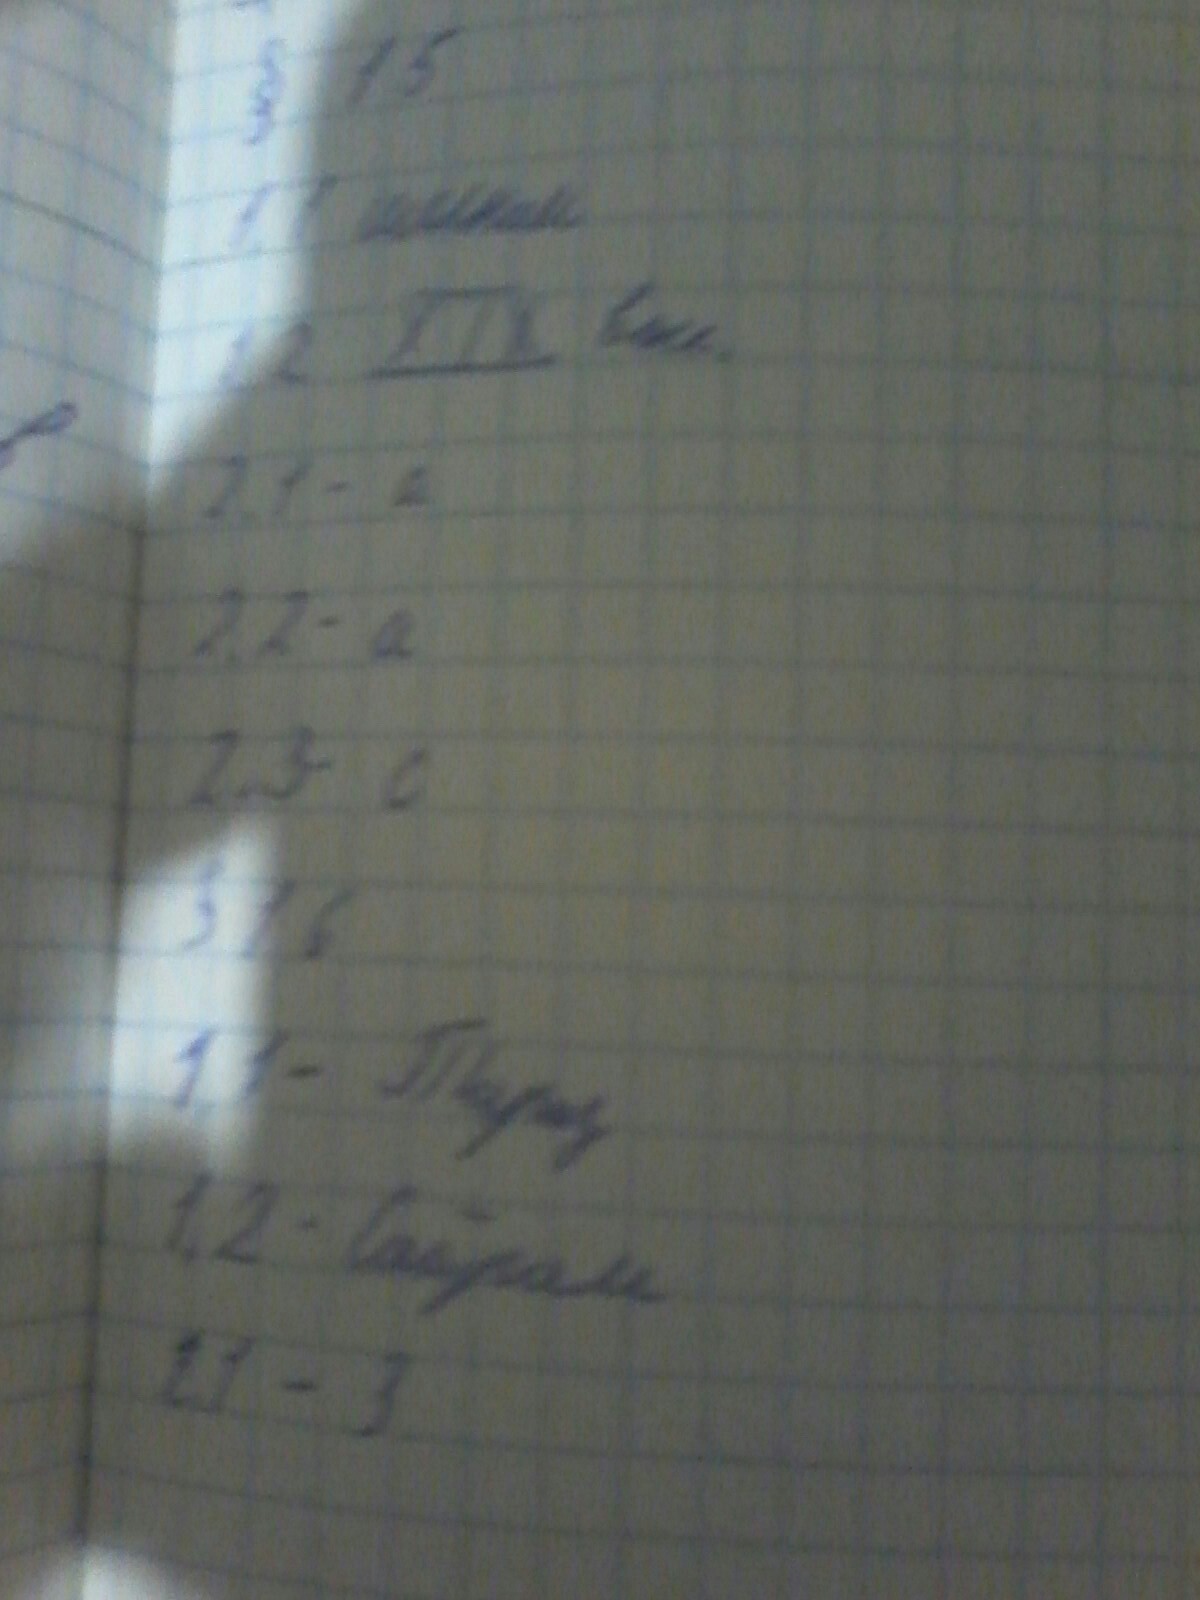 § 15
1.1
1.2 XIX
2.1 - а
2.2 - а
2.3 - с
§ 16
1.1 - Тараз
1.2 - Сайрам
2.1 - 3